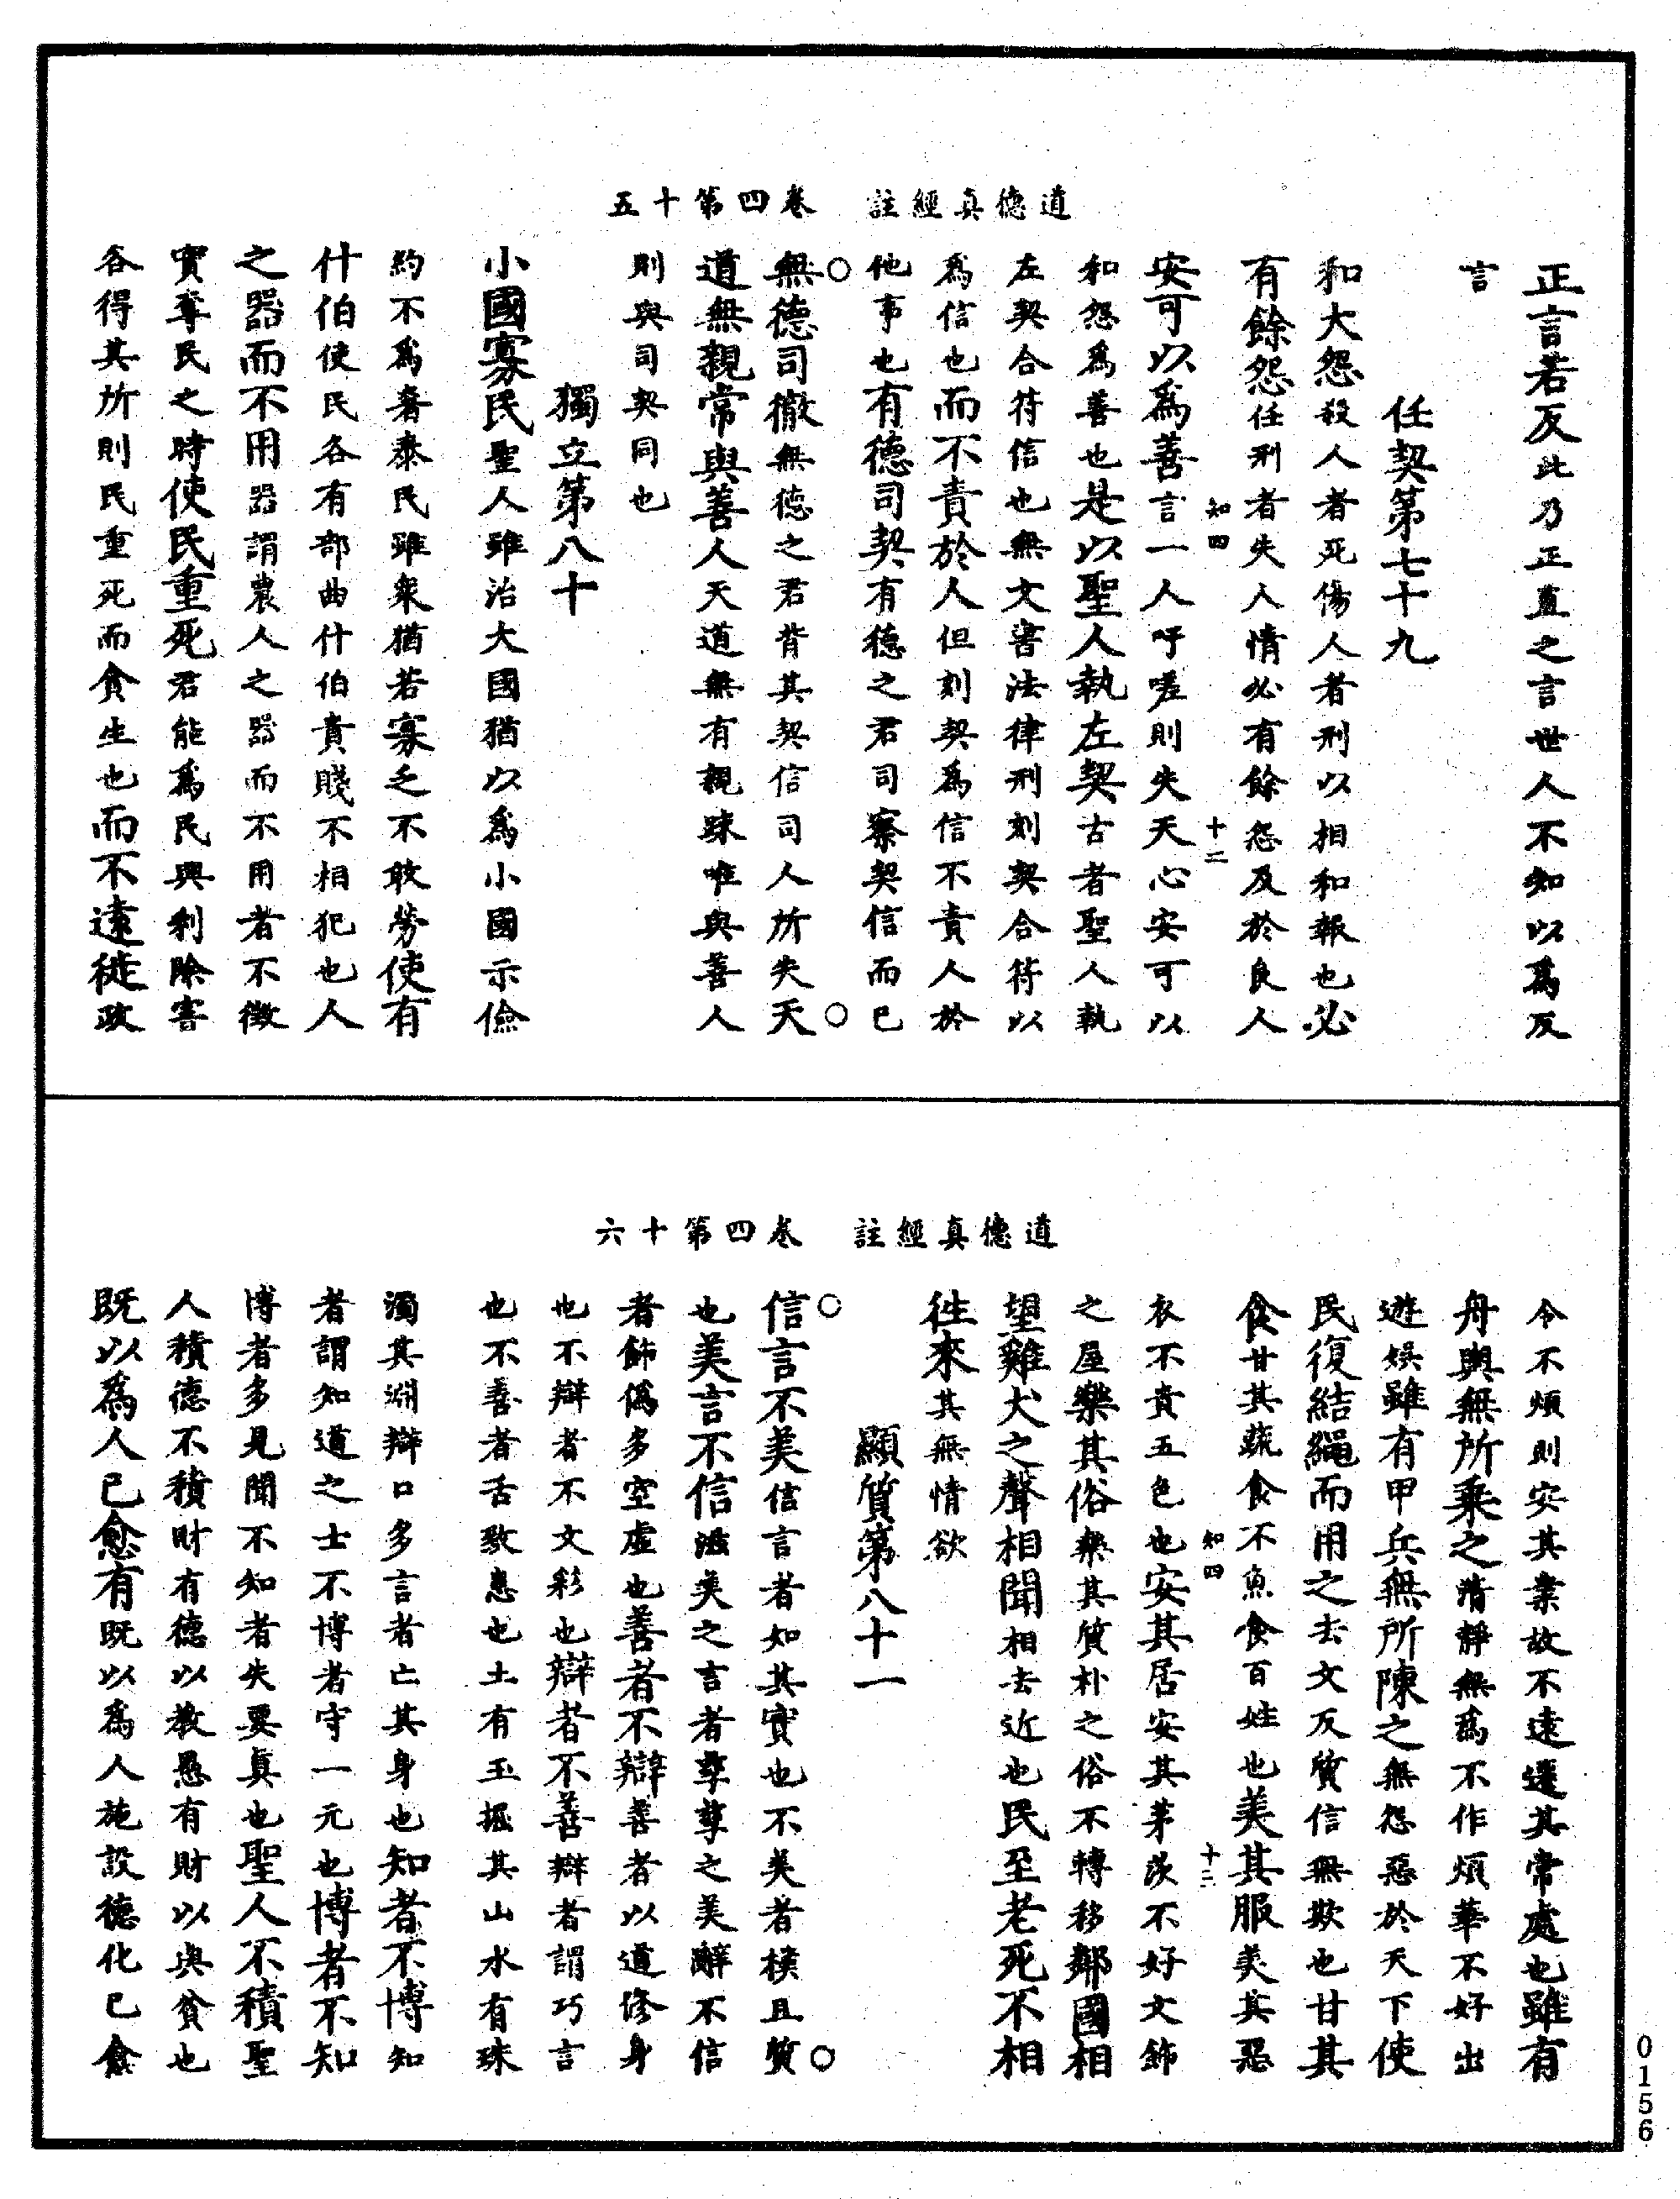 道德真經註　卷四第十五
正言若反此乃正直之言世人不知以為反
言
任契第七十九
和大怨殺人者死傷人者刑以相和報也必
有餘怨任刑者失人情必有餘怨及於良人
知四　十二
安可以為善言一人吁嗟則失天心安可以
和怨為善也是以聖人執左契古者聖人執
左契合符信也無文書法律刑刻契合符以
為信也而不責於人但刻契為信不責人於
他事也有德司契有德之君司察契信而已
○　○
無德司徹無德之君背其契信司人所失天
道無親常與善人天道無有親踈唯與善人
則與司契同也
獨立第八十
小國寡民聖人雖治大國猶以為小國示儉
約不為奢泰民雖衆猶若寡乏不敢勞使有
什伯使民各有部曲什伯貴賤不相犯也人
之器而不用器謂農人之器而不用者不徵
實奪民之時使民重死君能為民興利除害
各得其所則民重死而貪生也而不遠徙政
道德真經註　卷四第十六
令不煩則安其業故不遠遷其常處也雖有
舟輿無所乘之清靜無為不作煩華不好出
遊娛雖有甲兵無所陳之無怨惡於天下使
民復結繩而用之去文反質信無欺也甘其
食甘其蔬食不魚食百姓也美其服美其惡
知四　十三
衣不貴五色也安其居安其茅茨不好文飾
之屋樂其俗樂其質朴之俗不轉移鄰國相
望雞犬之聲相聞相去近也民至老死不相
徃來其無情欲
顯質第八十一
○　○
信言不美信言者如其實也不美者樸且質
也美言不信滋美之言者孳孳之美辭不信
者飾偽多空虛也善者不辯善者以道修身
也不辯者不文彩也辯者不善辯者謂巧言
也不善者舌致患也土有玉掘其山水有珠
濁其淵辯口多言者亡其身也知者不博知
者謂知道之士不博者守一元也博者不知
博者多見聞不知者失要真也聖人不積聖
人積德不積財有德以教愚有財以與貧也
既以為人已愈有既以為人施設德化已愈
0156